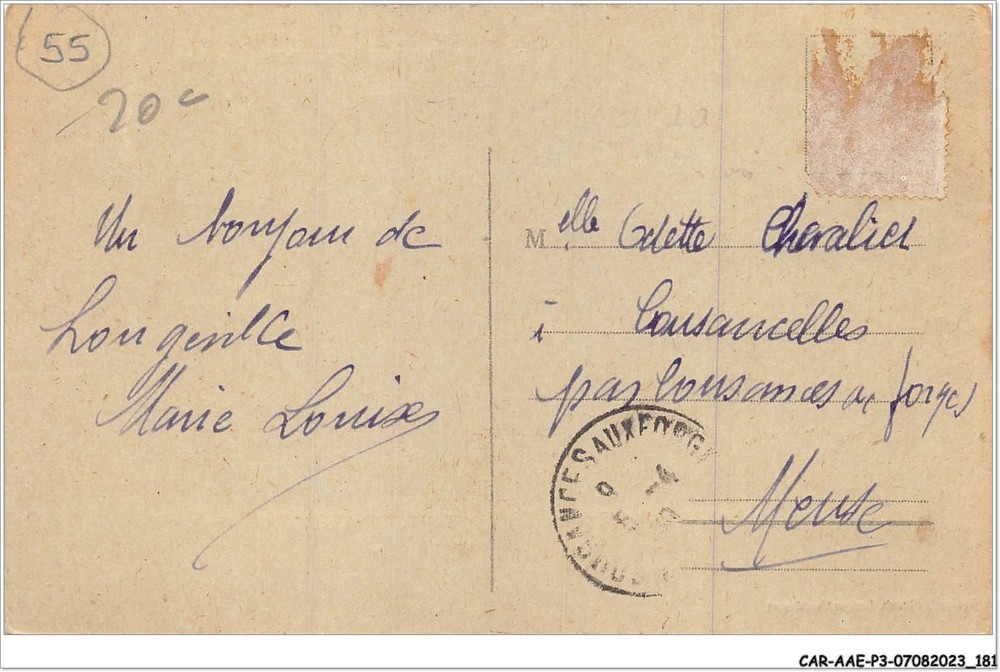 55
20c
Un bonjour de
Longeville
Marie Louise
Melle Odette Chevalier
à Cousancelles
par Cousances aux forges
Meuse
COUSANCES AUX FORGE
CAR-AAE-P3-07082023_181